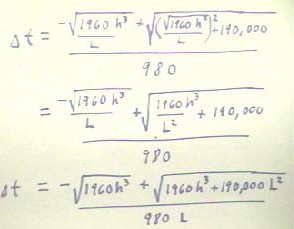 Δt = (-√(1960 h³)/L + √((√(1960 h³)/L)² + 190,000)) / 980
= (-√(1960 h³)/L + √(1960 h³/L² + 190,000)) / 980
Δt = (-√(1960h³) + √(1960h³ + 190,000 L²)) / 980 L